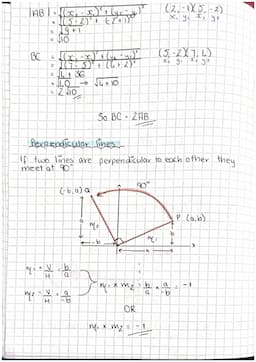 |AB| = √(x₂ - x₁)² + (y₂ - y₁)² (2, -1)(5, -2)
= √(5-2)² + (-2+1)² x₁ y₁ x₂ y₂
= √9 + 1
= √10
BC = √(x₂ - x₁)² + (y₂ - y₁)² (5, -2)(7, 4)
= √(7-5)² + (4+2)² x₁ y₁ x₂ y₂
= √4 + 36
= √40 → √4×10
= 2√10
So BC = 2AB
Perpendicular lines
If two lines are perpendicular to each other they
meet at 90°
90°
(-b, a) Q
P (a, b)
a
m₂
m₁
b
-b
a
m₁ = V/H = b/a
m₂ = V/H = a/-b
m₁ × m₂ = b/a × a/-b = -1
OR
m₁ × m₂ = -1